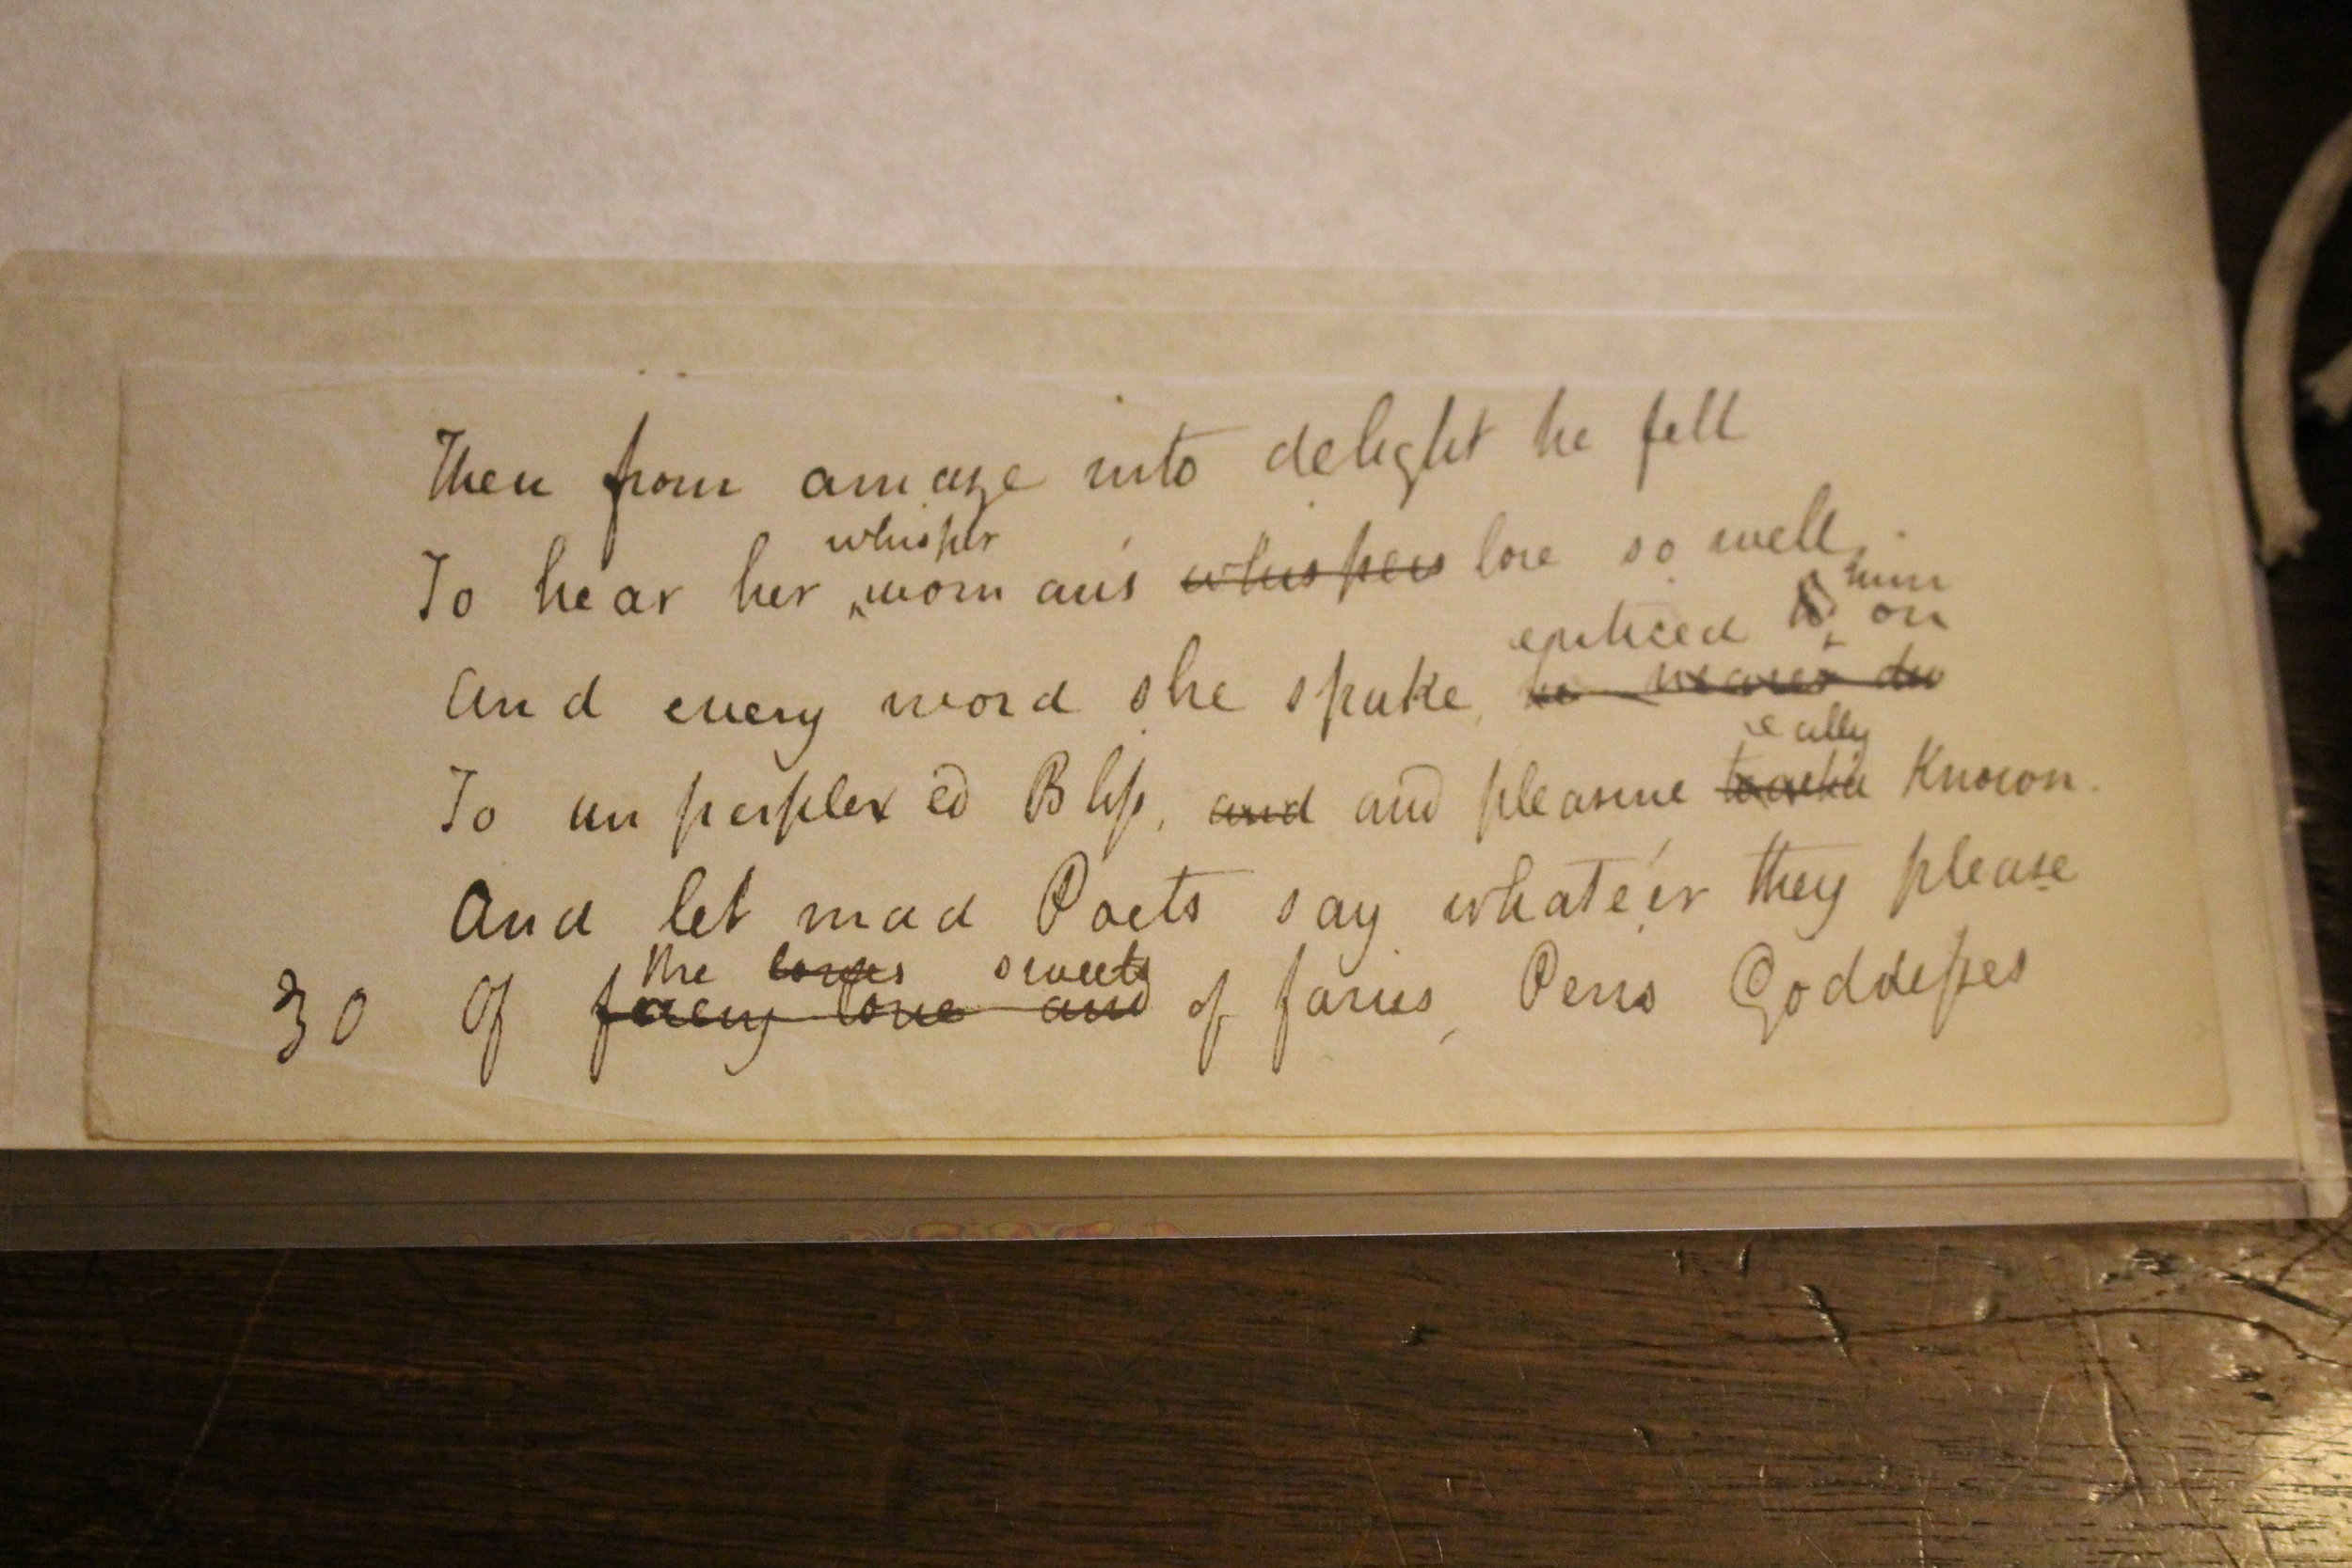 Then from amaze into delight he fell
whisper
To hear her woman's whispers lore so well
him
enticed on
And every word she spake he nearer
To unperplexed Bliss, and and pleasure known.
And let mad Poets say whate'er they please
the loves sweets
30 Of faery love and of faries, Peris Goddesses